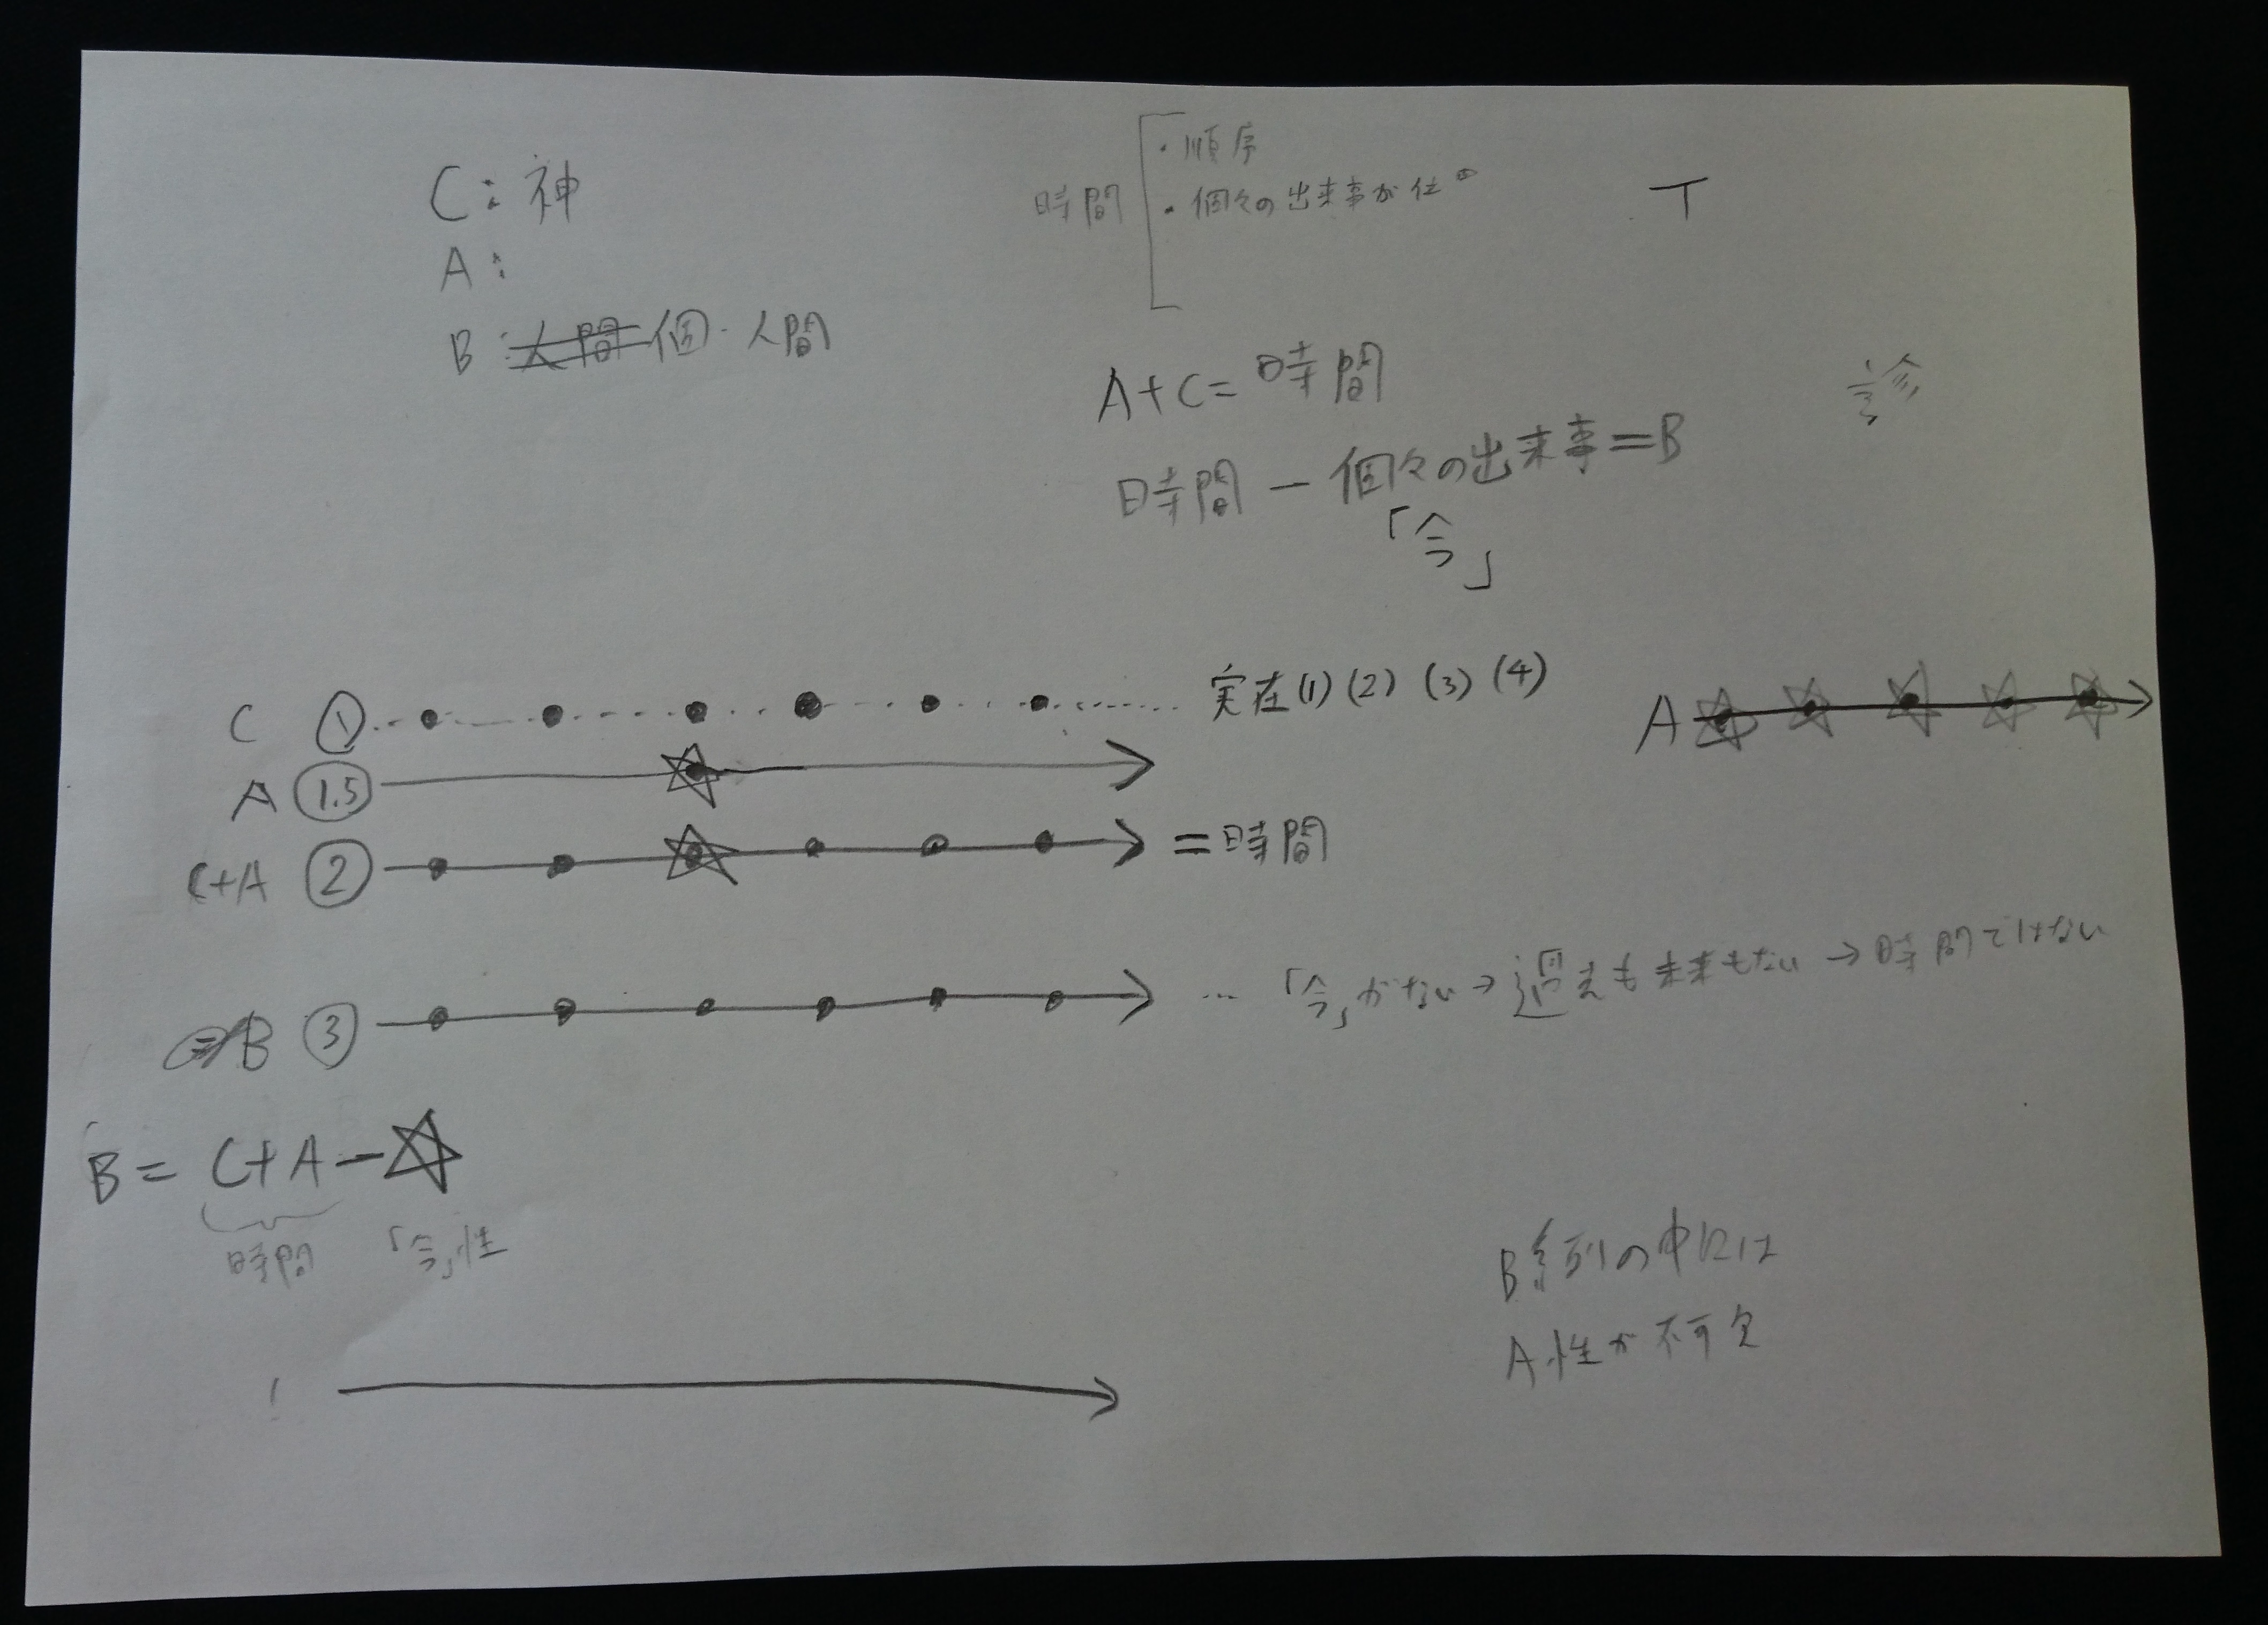 C:神
A:
B:人間 個・人間
時間
・順序
・個々の出来事が位
T
A+C=時間
時間 − 個々の出来事=B
「今」
診
C ① 実在(1) (2) (3) (4)
A
A 1.5
C+A ② =時間
B ③ … 「今」がない→過去も未来もない→時間ではない
B= C+A−☆
時間 「今」性
B系列の中には
A性が不可欠